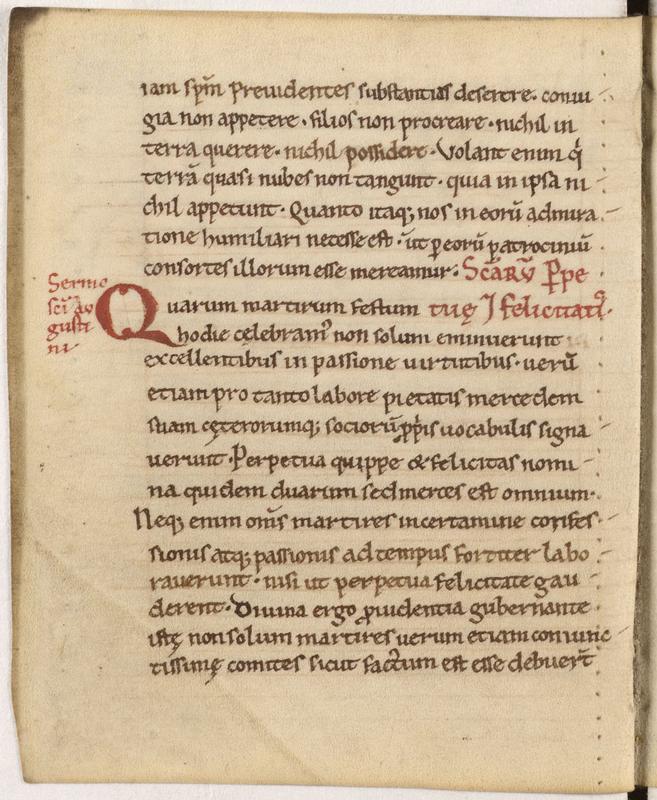 iam sp̄m preuidentes substantias deserere. coniu
gia non appetere. filios non procreare. nichil in
terra querere. nichil possidere. Volant enim q̄
terrā quasi nubes non tangunt. quia in ipsa ni
chil appetunt. Quanto itaq; nos in eorū admira
tione humiliari necesse est. ut p eorū patrociniū
consortes illorum esse mereamur. Sc̄arū Ppe
Sermo
sc̄i au
gusti
ni
Quarum martirum festum tuę ⁊ felicitatꝭ.
hodie celebramꝰ non solum eminuerunt
excellentibus in passione uirtutibus. uerū
etiam pro tanto labore pietatis mercedem
suam cęterorumq; sociorū ꝓpͥis uocabulis signa
uerunt. Perpetua quippe & felicitas nomi
na quidem duarum sed merces est omnium.
Neq; enim om̄s martires in certamine confes
sionis atq; passionis ad tempus fortiter labo
rauerunt. nisi ut perpetua felicitate gau
derent. Diuina ergo ꝓuidentia gubernante
istę non solum martires uerum etiam coniunc
tissimę comites sicut factum est esse debuer̄t